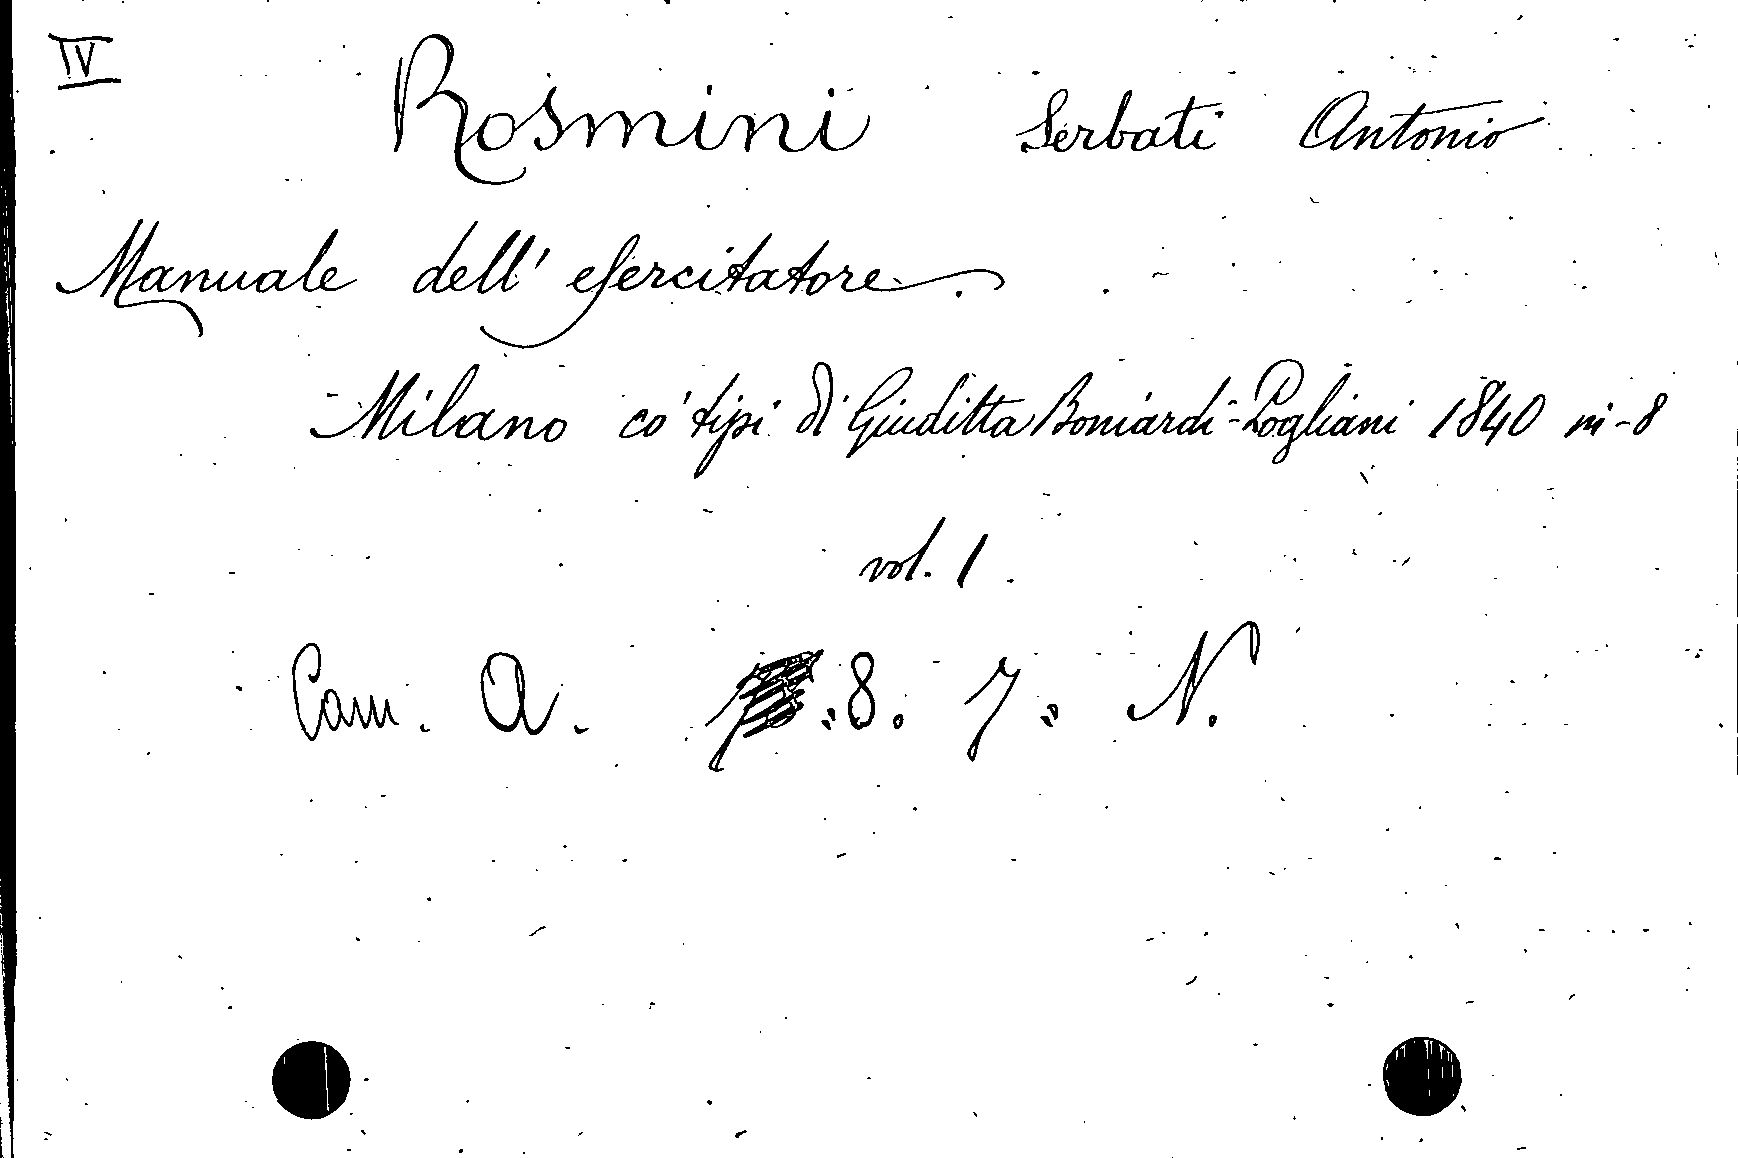 IV
Rosmini Serbati Antonio
Manuale dell' esercitatore.
Milano co' tipi di Giuditta Boniardi-Pogliani 1840 in-8
vol. 1.
Cam. A. .8. 7. N.